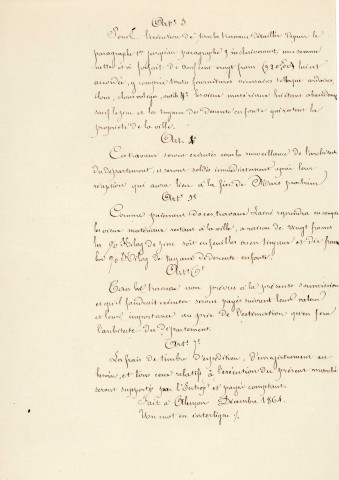 Art. 3
Pour l'exécution de tous les travaux détaillés depuis le
paragraphe 1er jusqu'au paragraphe 3 inclusivement, une somme
nette et à forfait de deux cent vingt francs (220,00) lui est
accordée, y compris toutes fournitures nécessaires telles que ardoises,
clous, les vieux matériaux lui étant abandonnés
sauf le zinc et les tuyaux de descente en fonte qui restent la
propriété de la ville.
Art. 4
Ces travaux seront exécutés sous la surveillance de l'architecte
du département, et seront soldés immédiatement après leur
réception qui aura lieu à la fin de Mars prochain
Art. 5e
Comme paiement de ces travaux reprendra en compte
les vieux matériaux restant à la ville, à raison de vingt francs
les 90 Kilog de zinc soit en feuilles ou en tuyaux et dix francs
les 90 Kilog de tuyaux de descente en fonte.
Art. 6e
Tous les travaux non prévus à la présente soumission
et qu'il faudrait exécuter seront payés suivant leur valeur
et leur importance au prix de l'estimation qu'en fera
l'architecte du département.
Art. 7e
Les frais de timbre d'expédition, d'enregistrement au
besoin, et tous ceux relatifs à l'exécution du présent marché
seront supportés par l'Entrepr et payés comptant.
Fait à Alençon Décembre 1864.
Un mot en interligne /.